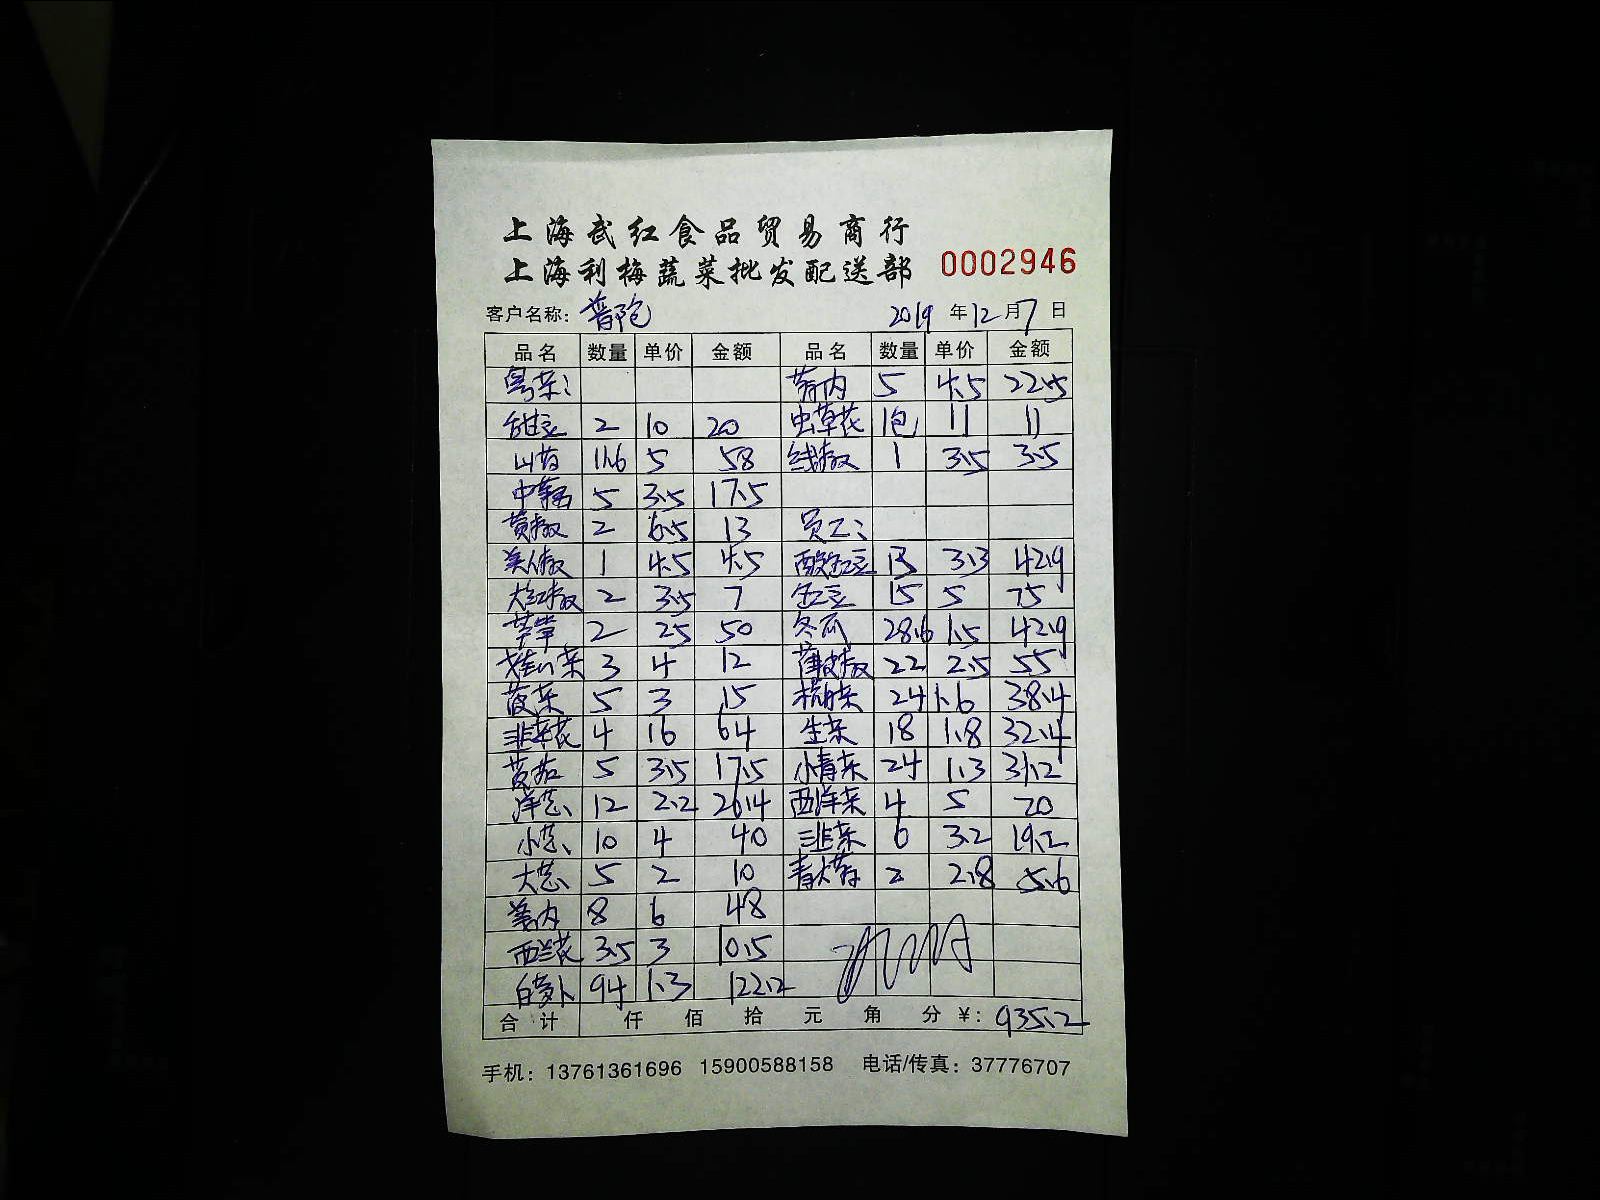 上海武红食品贸易商行
上海利梅蔬菜批发配送部 0002946
客户名称：普陀 2019 年 12 月 7 日
品名 数量 单价 金额 品名 数量 单价 金额
粤菜： 5 4.5 22.5
甜豆 2 10 20 虫草花 1包 11 11
山药 11.6 5 58 线椒 1 3.5 3.5
5 3.5 17.5
黄椒 2 6.5 13 员工：
美人椒 1 4.5 4.5 酸豇豆 13 3.3 42.9
大红椒 2 3.5 7 豇豆 15 5 75
2 25 50 冬瓜 28.6 1.5 42.9
娃娃菜 3 4 12 薄皮椒 22 2.5 55
菠菜 5 3 15 杭白菜 24 1.6 38.4
韭菜花 4 16 64 生菜 18 1.8 32.4
5 3.5 17.5 小青菜 24 1.3 31.2
洋葱 12 2.2 26.4 西洋菜 4 5 20
小葱 10 4 40 韭菜 6 3.2 19.2
大葱 5 2 10 青大蒜 2 2.8 5.6
姜肉 8 6 48
西兰花 3.5 3 10.5
白萝卜 94 1.3 122.2
合计 仟 佰 拾 元 角 分 ¥：935.2
手机：13761361696 15900588158 电话/传真：37776707